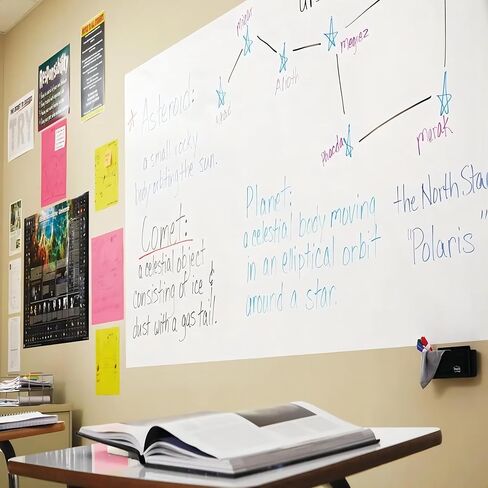 Responsibility
TRY
Mizar
Alioth
Megrez
Phaecda
merak
* Asteroid:
a small rocky
body orbiting the sun.
Comet:
a celestial object
consisting of ice &
dust with a gas tail!
Planet:
a celestial body moving
in an elliptical orbit
around a star.
the North Sta
"Polaris"